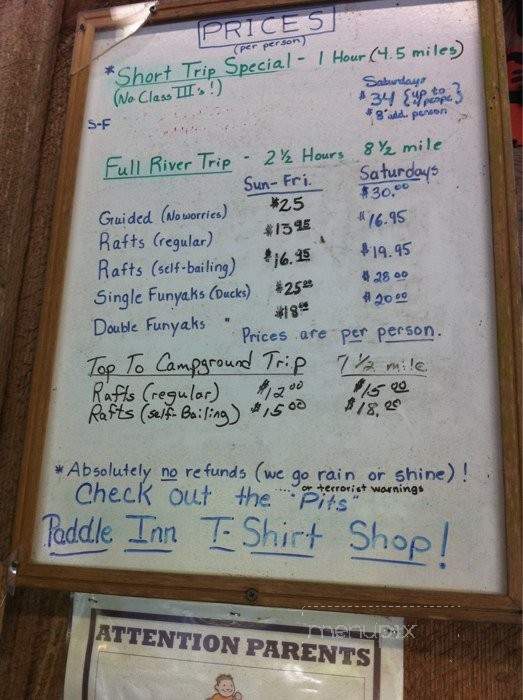 PRICES
(per person)
*Short Trip Special - 1 Hour (4.5 miles)
(No Class III's!)
Saturdays
$34 {up to
people}
$8 add. person
S-F
Full River Trip - 2½ Hours 8½ mile
Sun-Fri. Saturdays
Guided (No worries) $25 $30.00
Rafts (regular) $13.95 $16.95
Rafts (self-bailing) $16.95 $19.95
Single Funyaks (Ducks) $25.00 $28.00
Double Funyaks " $18.00 $20.00
Prices are per person.
Top To Campground Trip 7½ mile
Rafts (regular) $12.00 $15.00
Rafts (self-Bailing) $15.00 $18.00
*Absolutely no refunds (we go rain or shine)!
... or terrorist warnings
Check out the "Pits"
Paddle Inn T-Shirt Shop!
menupix
ATTENTION PARENTS